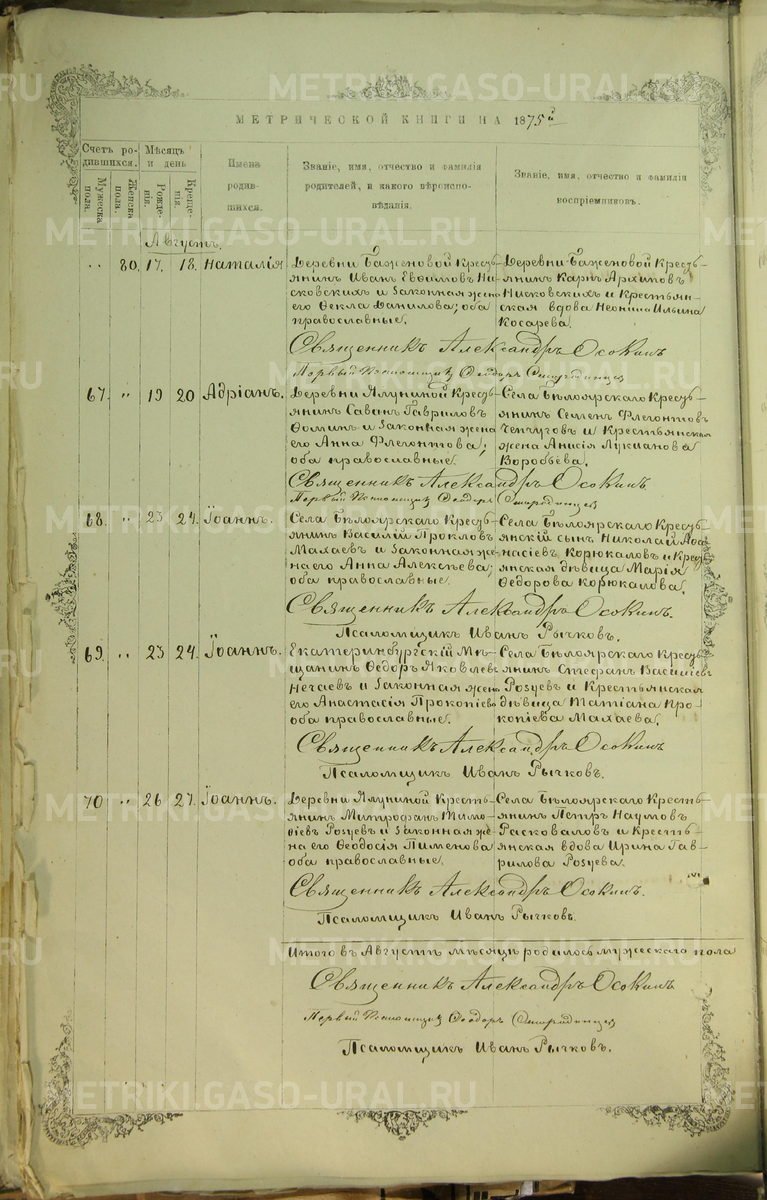 МЕТРИЧЕСКОЙ КНИГИ НА 1875й
Счетъ ро-
дившихся.
Мужеска
пола.
Женска
пола.
Мѣсяцъ
и день
Рожде-
нія.
Креще-
нія.
Имена
родив-
шихся.
Званіе, имя, отчество и фамилія
родителей, и какого вѣроиспо-
вѣданія.
Званіе, имя, отчество и фамилія
воспріемниковъ.
Августъ.
„ 80. 17. 18. Наталія
Деревни Баженовой Кресть-
янинъ Иванъ Евѳимовъ Ни-
сковскихъ и законная жена
его Ѳекла Данилова; оба
православные.
Деревни Баженовой Кресть-
янинъ Карпъ Архиповъ
Нисковскихъ и Крестьян-
ская вдова Неонила Ильина
Косарева.
Священникъ Александръ Осокинъ
Первый Ѳеодоръ
67. „ 19 20 Адріанъ.
Деревни Ялуниной Кресть-
янинъ Гавриловъ
Ѳоминъ и законная жена
его Анна Флегонтова;
оба православные.
Села Бѣлоярскаго Кресть-
янинъ Семенъ Флегонтовъ
Чепчуговъ и Крестьянская
жена Анисія Лукіанова
Воробьева.
Священникъ Александръ Осокинъ.
Первый Ѳеодоръ
68. „ 23 24. Іоаннъ.
Села Бѣлоярскаго Кресть-
янинъ Василій Прокловъ
Махаевъ и законная же-
на его Анна Алексѣева;
оба православные.
Села Бѣлоярскаго Кресть-
янскій сынъ Николай Аѳа-
насіевъ Корюкаловъ и Кресть-
янская дѣвица Марія
Ѳедорова Корюкалова.
Священникъ Александръ Осокинъ.
Псаломщикъ Иванъ Рычковъ.
69. „ 23 24. Іоаннъ.
Екатеринбургскій Мѣ-
щанинъ Ѳедоръ Яковлевъ
Нечаевъ и законная жена
его Анастасія Прокопіева
оба православные.
Села Бѣлоярскаго Кресть-
янинъ Стефанъ Василіевъ
Розуевъ и Крестьянская
дѣвица Татіана Про-
копіева Махаева.
Священникъ Александръ Осокинъ
Псаломщикъ Иванъ Рычковъ.
70 „ 26 27. Іоаннъ.
Деревни Ялуниной Кресть-
янинъ Митрофанъ Тимо-
ѳіевъ Розуевъ и законная же-
на его Ѳеодосія Пименова
оба православные.
Села Бѣлоярскаго Кресть-
янинъ Петръ Наумовъ
Расковаловъ и Кресть-
янская вдова Ирина Гав-
рилова Розуева.
Священникъ Александръ Осокинъ.
Псаломщикъ Иванъ Рычковъ.
Итого въ Августѣ мѣсяцѣ родилось мужескаго пола
Священникъ Александръ Осокинъ
Первый Ѳеодоръ
Псаломщикъ Иванъ Рычковъ.
METRIKI.GASO-URAL.RU